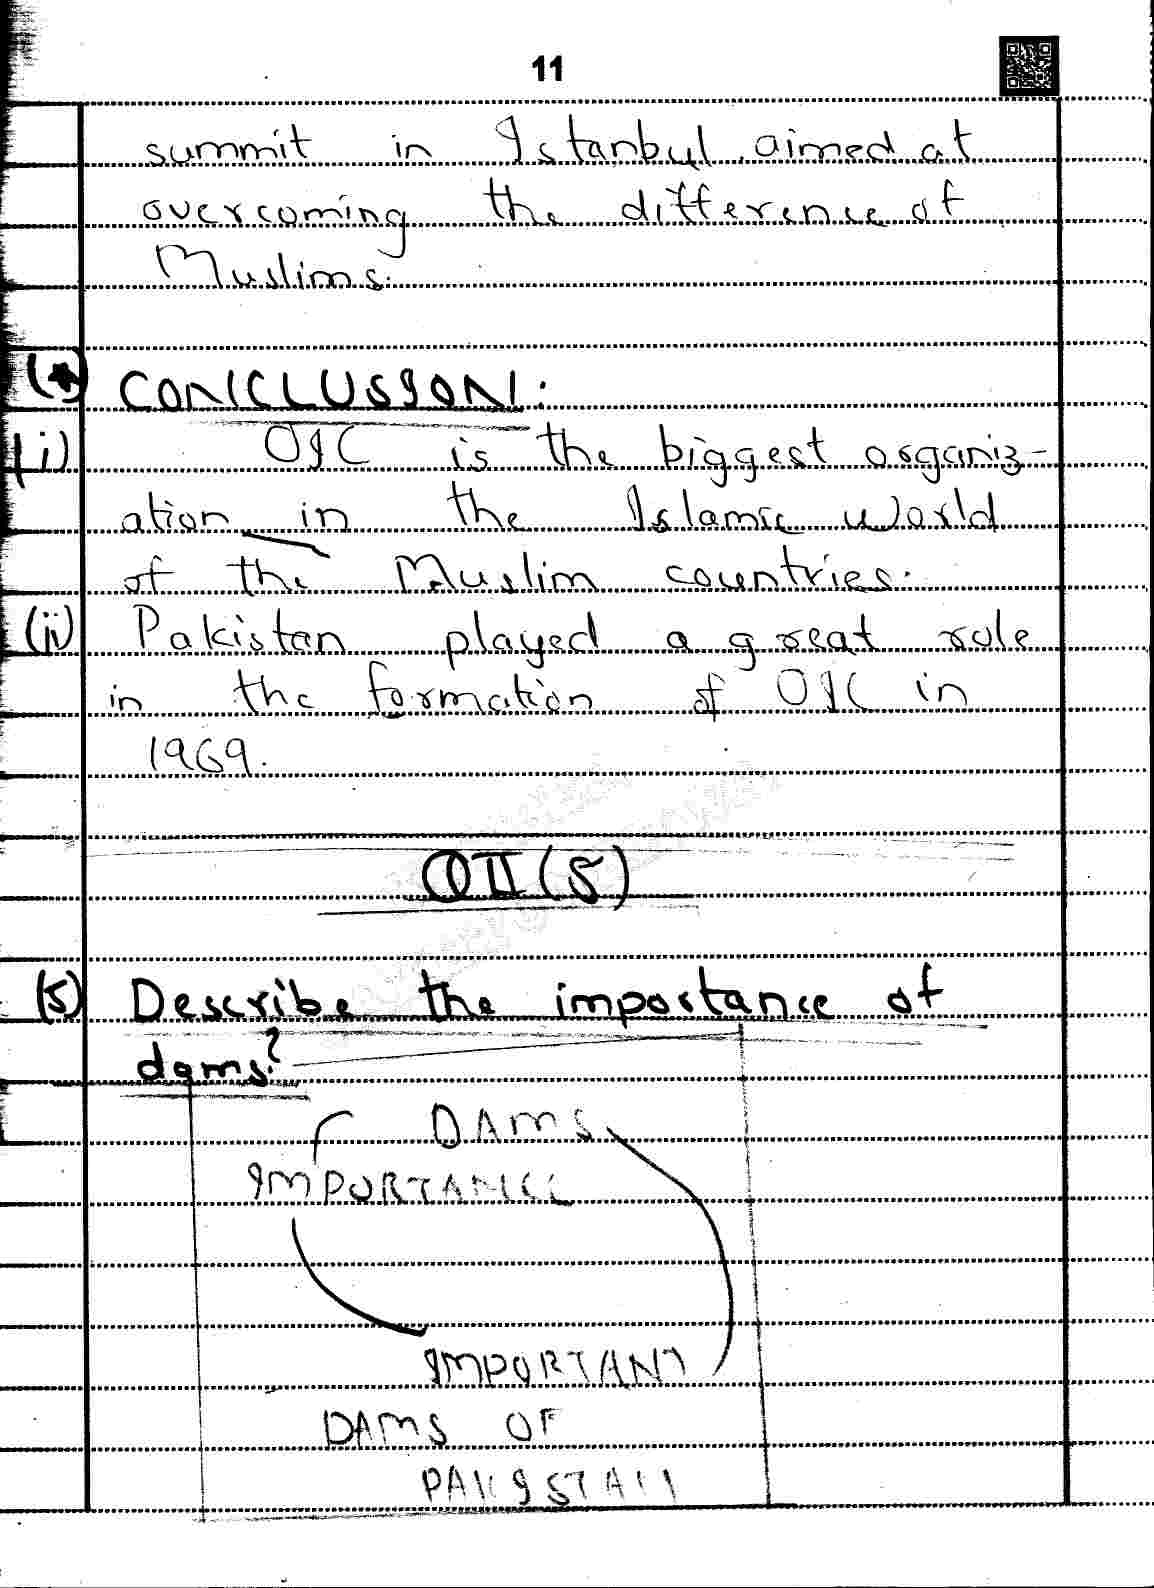 11
summit in Istanbul aimed at
overcoming the difference of
Muslims.
(*) CONCLUSION:
(i) OIC is the biggest organiz-
ation in the Islamic world
of the Muslim countries.
(ii) Pakistan played a great role
in the formation of OIC in
1969.
QII(5)
(5) Describe the importance of
dams?
DAMS
IMPORTANCE
IMPORTANT
DAMS OF
PAKISTAN